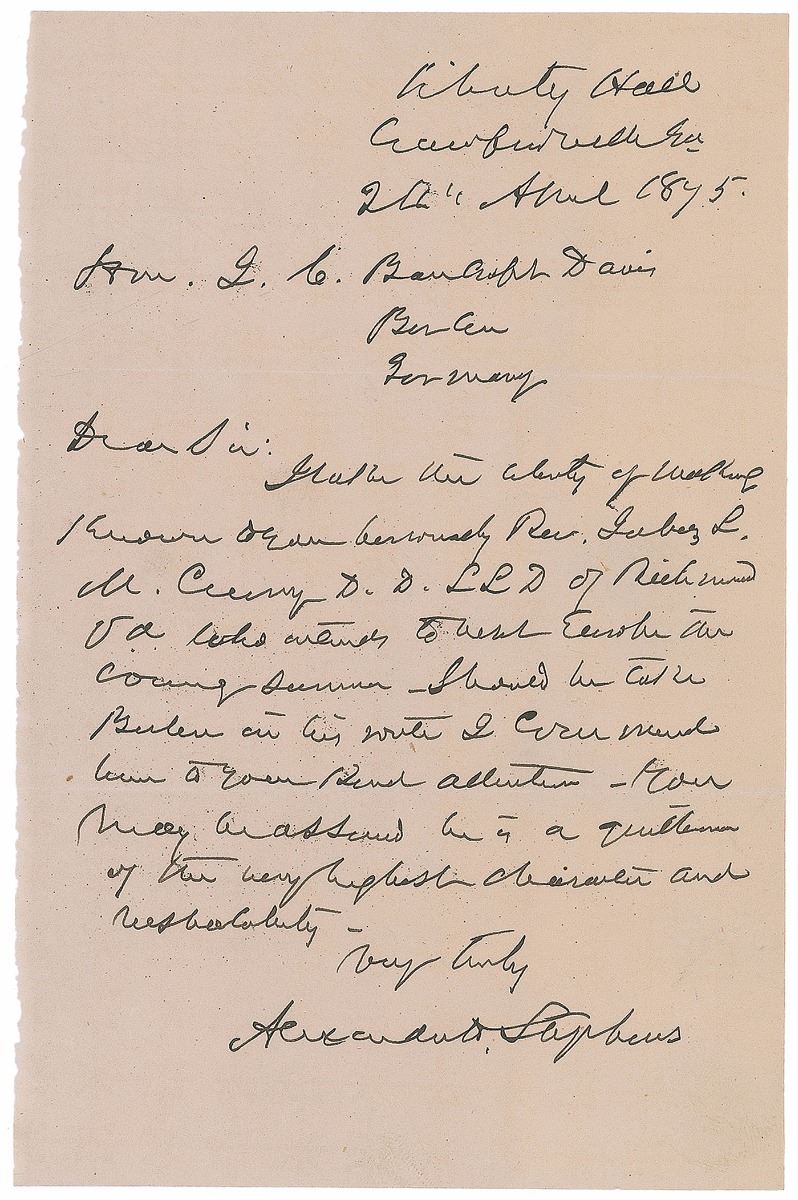 Liberty Hall
Crawfordville Ga
April 1875.
Hon. J. C. Bancroft Davis
Berlin
Germany
Dear Sir:
I take the liberty of making
known to you personally Rev. Jabez L.
M. Curry D. D. LLD of Richmond
Va who intends to visit Europe the
coming summer – Should he take
Berlin in his route I commend
him to your kind attention – You
may be assured he is a gentleman
of the very highest character and
respectability –
Very truly
Alexander H. Stephens